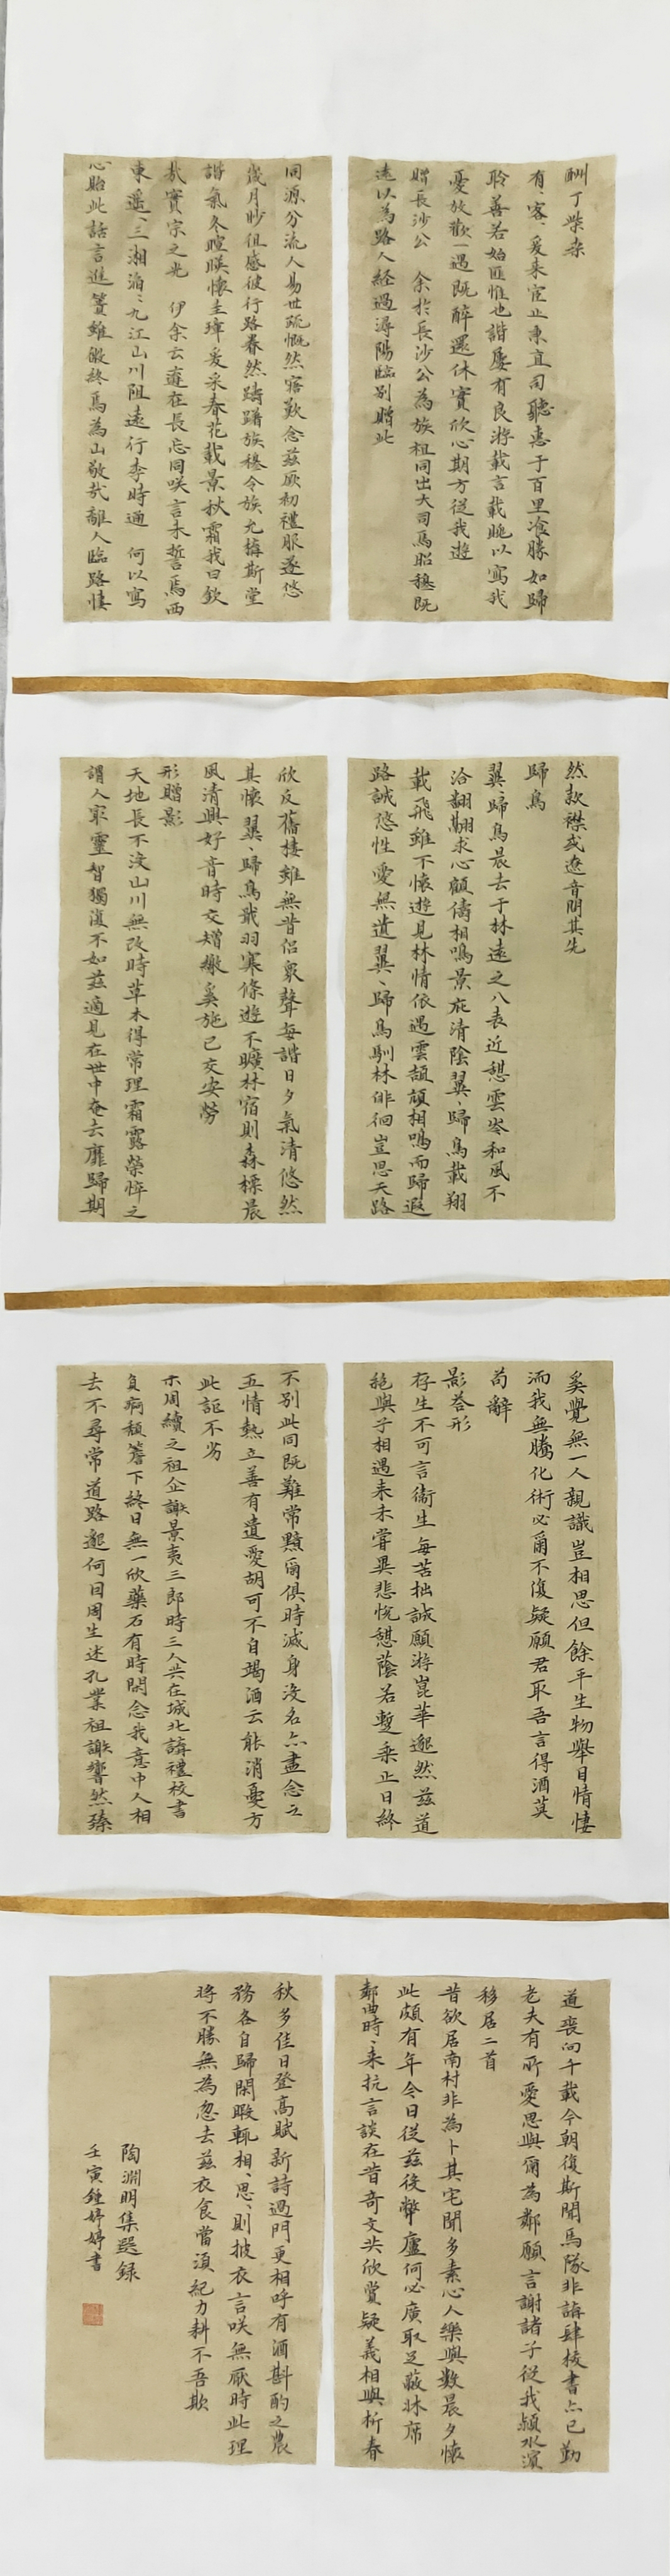 酬丁柴桑
有、客、爰来宦止秉直司聽惠于百里飡勝如歸
聆善若始匪惟也諧屢有良游載言載眺以寫我
憂放歡一遇既醉還休實欣心期方從我遊
贈長沙公 余於長沙公為族祖同出大司馬昭穆既
遠以為路人経過潯陽臨別贈此
同源分流人易世疏慨然寤歎念茲厥初禮服遂悠
歲月眇徂感彼行路眷然躊躇族穆令族允構斯堂
諧氣冬暄暎懷圭璋爰采春花載景秋霜我曰欽
哉實宗之光 伊余云遘在長忘同咲言未誓焉西
東遥、三湘滔、九江山川阻遠行李時通 何以寫
心貽此話言進簣雖微終焉為山敬哉離人臨路悽
然款襟或遼音問其先
歸鳥
翼、歸鳥晨去于林遠之八表近憇雲岑和風不
洽翻翮求心顧儔相鳴景庇清陰翼、歸鳥載翔
載飛雖不懷遊見林情依遇雲頡頏相鳴而歸遐
路誠悠性愛無遺翼、歸鳥馴林徘徊豈思天路
欣反舊棲雖無昔侶衆聲每諧日夕氣清悠然
其懷翼、歸鳥戢羽寒條遊不曠林宿則森標晨
風清興好音時交矰繳奚施已交安勞
形贈影
天地長不沒山川無改時草木得常理霜露榮悴之
謂人冣靈智獨復不如茲適見在世中奄去靡歸期
奚覺無一人親識豈相思但餘平生物舉目情悽
洏我無騰化術必爾不復疑願君取吾言得酒莫
苟辭
影荅形
存生不可言衞生每苦拙誠願游崑華邈然茲道
絶與子相遇来未嘗異悲悅憇蔭若暫乘止日終
不別此同既難常黯爾俱時滅身沒名亦盡念之
五情熱立善有遺愛胡可不自竭酒云能消憂方
此詎不劣
示周續之祖企謝景夷三郎時三人共在城北講禮校書
負痾頹簷下終日無一欣藥石有時閑念我意中人相
去不尋常道路邈何因周生述孔業祖謝響然臻
道喪向千載今朝復斯聞馬隊非講肆校書亦已勤
老夫有所愛思與爾為鄰願言謝諸子從我潁水濱
移居二首
昔欲居南村非為卜其宅聞多素心人樂與數晨夕懷
此頗有年今日從茲役弊廬何必廣取足蔽牀席
鄰曲時、来抗言談在昔奇文共欣賞疑義相與析春
秋多佳日登高賦新詩過門更相呼有酒斟酌之農
務各自歸閑暇輒相、思、則披衣言咲無厭時此理
將不勝無為忽去茲衣食當須紀力耕不吾欺
陶淵明集選録
壬寅鍾婷婷書